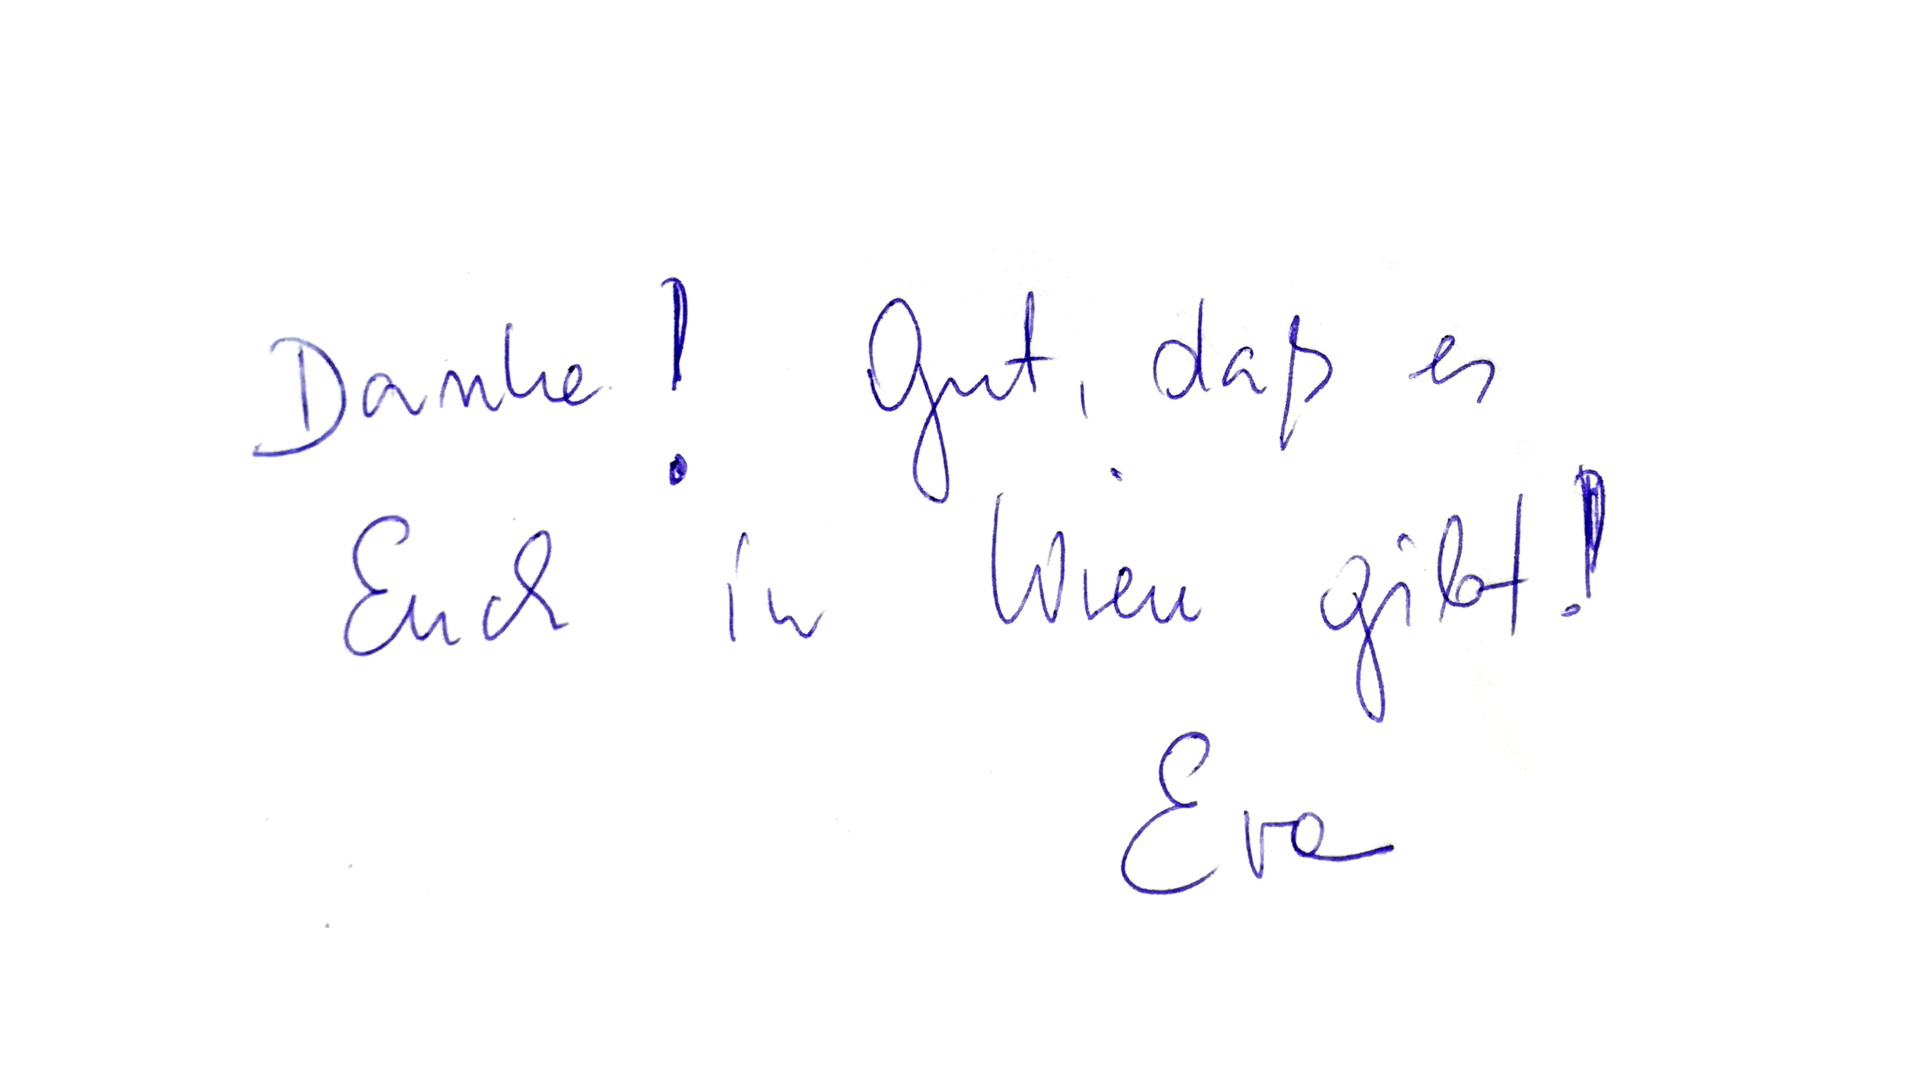 Danke! Gut, daß es
Euch in Wien gibt!
Eva